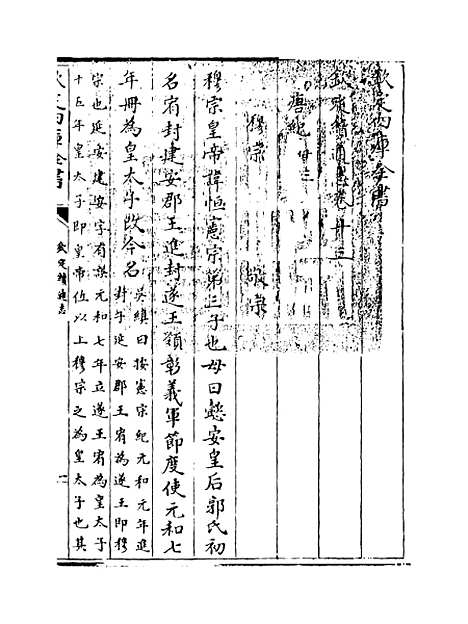 欽定四庫全書
欽定續通志卷十三
唐紀十三
穆宗　敬宗
穆宗皇帝諱恒憲宗第三子也母曰懿安皇后郭氏初
名宥封建安郡王進封遂王領彰義軍節度使元和七
年冊為皇太子改今名
吳縝曰按憲宗紀元和元年進
封子延安郡王宥為遂王即穆
宗也延安建安字有誤元和七年立遂王宥為皇太子
十五年皇太子即皇帝位以上穆宗之為皇太子也其
欽定四庫全書
欽定續通志
一